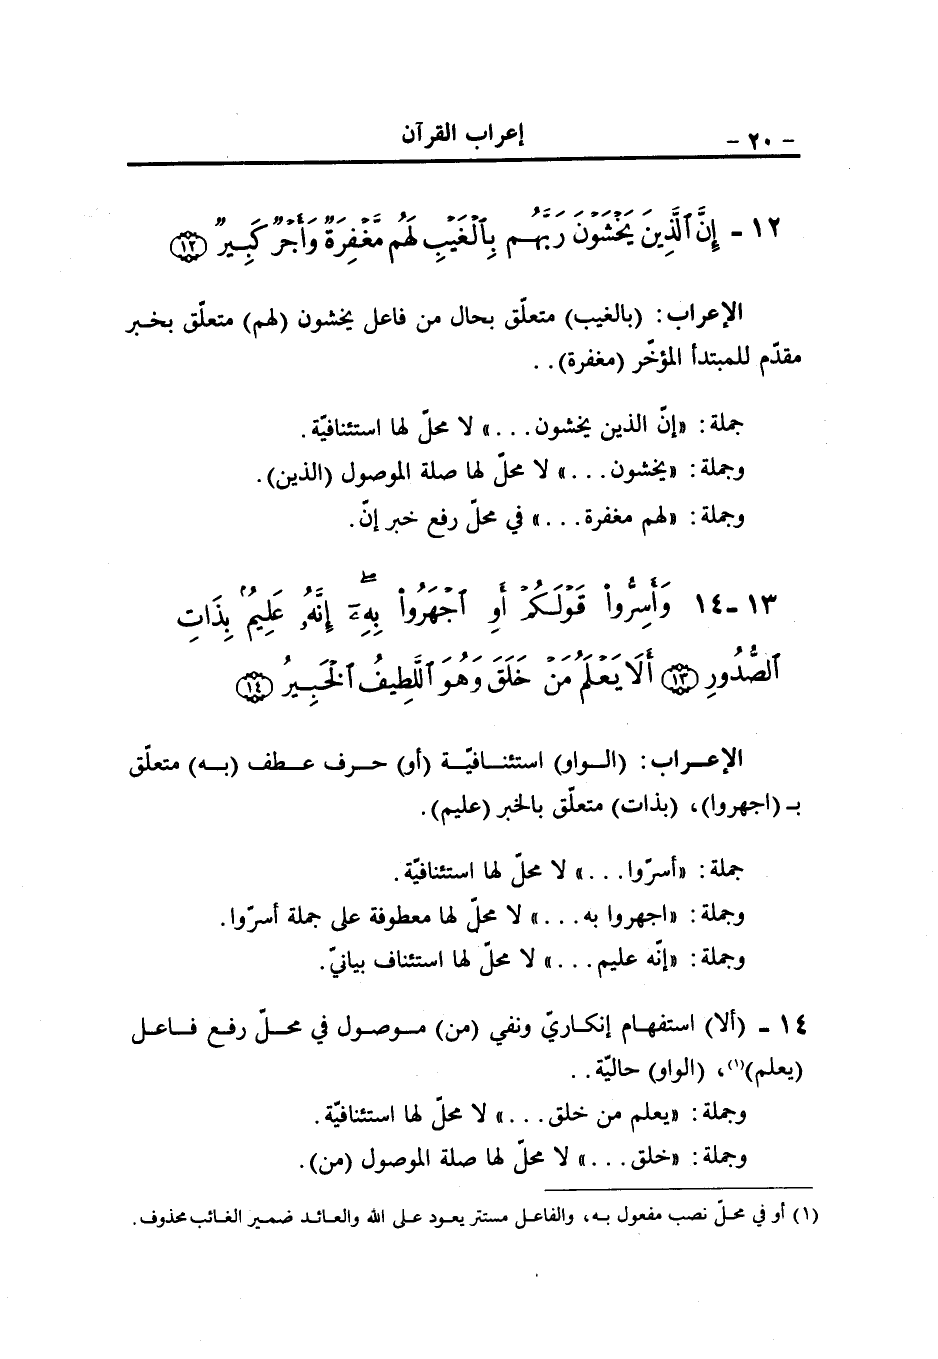 - ٢٠ -
إعراب القرآن
١٢ - إِنَّ ٱلَّذِينَ يَخۡشَوۡنَ رَبَّهُم بِٱلۡغَيۡبِ لَهُم مَّغۡفِرَةٞ وَأَجۡرٞ كَبِيرٞ ١٢
الإعراب: (بالغيب) متعلّق بحال من فاعل يخشون (لهم) متعلّق بخبر
مقدّم للمبتدأ المؤخّر (مغفرة)..
جملة: «إنّ الذين يخشون...» لا محلّ لها استئنافيّة.
وجملة: «يخشون...» لا محلّ لها صلة الموصول (الذين).
وجملة: «لهم مغفرة...» في محلّ رفع خبر إنّ.
١٣-١٤ وَأَسِرُّواْ قَوۡلَكُمۡ أَوِ ٱجۡهَرُواْ بِهِۦٓۖ إِنَّهُۥ عَلِيمُۢ بِذَاتِ
ٱلصُّدُورِ ١٣ أَلَا يَعۡلَمُ مَنۡ خَلَقَ وَهُوَ ٱللَّطِيفُ ٱلۡخَبِيرُ ١٤
الإعراب: (الواو) استئنافيّة (أو) حرف عطف (به) متعلّق
بـ (اجهروا)، (بذات) متعلّق بالخبر (عليم).
جملة: «أسرّوا...» لا محلّ لها استئنافيّة.
وجملة: «اجهروا به...» لا محلّ لها معطوفة على جملة أسرّوا.
وجملة: «إنّه عليم...» لا محلّ لها استئناف بيانيّ.
١٤ - (ألا) استفهام إنكاريّ ونفي (من) موصول في محلّ رفع فاعل
(يعلم)(١)، (الواو) حاليّة..
وجملة: «يعلم من خلق...» لا محلّ لها استئنافيّة.
وجملة: «خلق...» لا محلّ لها صلة الموصول (من).
(١) أو في محلّ نصب مفعول به، والفاعل مستتر يعود على الله والعائد ضمير الغائب محذوف.